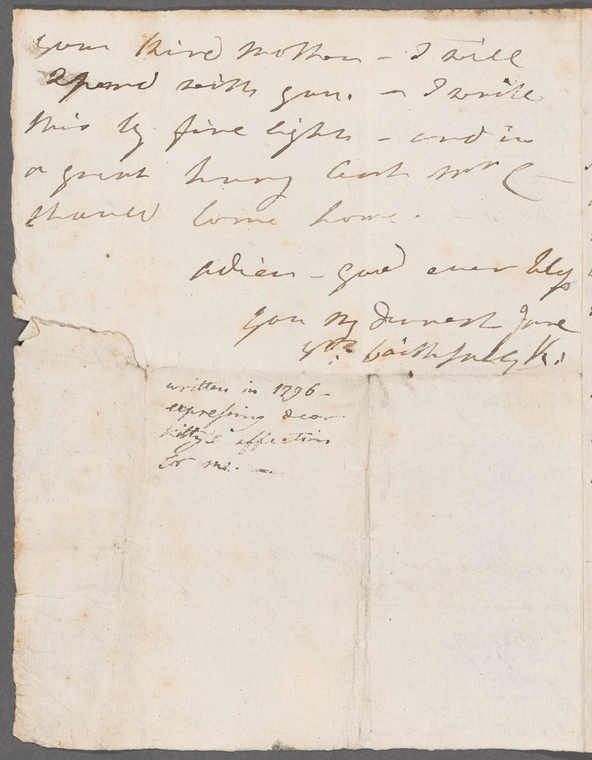 your kind Mother – I will
Spend with you. – I write
this by fire light – and in
a great hurry least Mr C –
should come home.
Adieu – god ever bless
you my dearest Jane
yrs. faithfully K.
written in 1796 –
expressing dear
Kitty's affection
for me. –